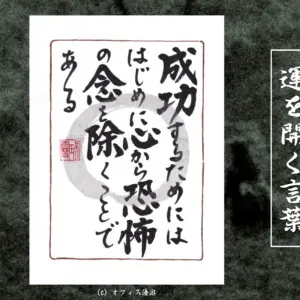 運を開く言葉
成功するためには
はじめに心から恐怖
の念を除くことで
ある
(c) オフィス